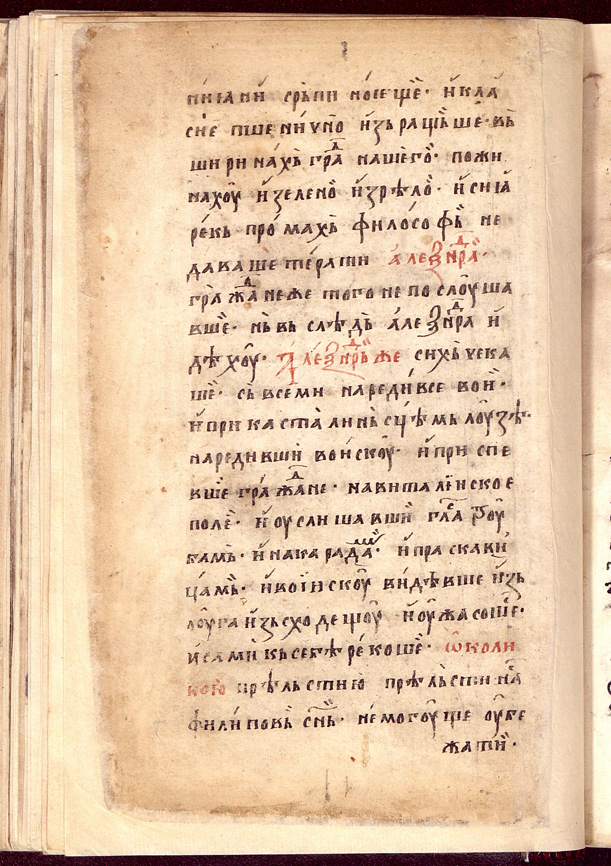 нїꙗ ни срьпи носещѐ · и кла
сїе пшенїчно изьращьше · вь
ширинахь гра нашего̀ · пожи
нахоу̀ и зелено и зрѣло · и сиꙗ
рекь промахь философь не
даваше терати але𝁇нра ·
гражане же того не послоуша
вше · нь вь слѣдь алеѯнра и
дѣхоу · Алеѯнрь же сихь чека
ше · сь всеми наредивсе вои ·
и при касталиньсцѣмь лоузѣ ·
наредивши воискоу · и приспе
вше гражане · на виталїнское
поле · и оуслишавши гла троу
бамь · и накарада · и праскави
цамь · и воїнскоу видѣвше изь
лоуга изьсходещоу и оужасоше ·
и сами кь себѣ рекоше · ѡ коли
кою прѣльстїю прѣльсти на
филиповь снь · не могоуще оубе
жати ·